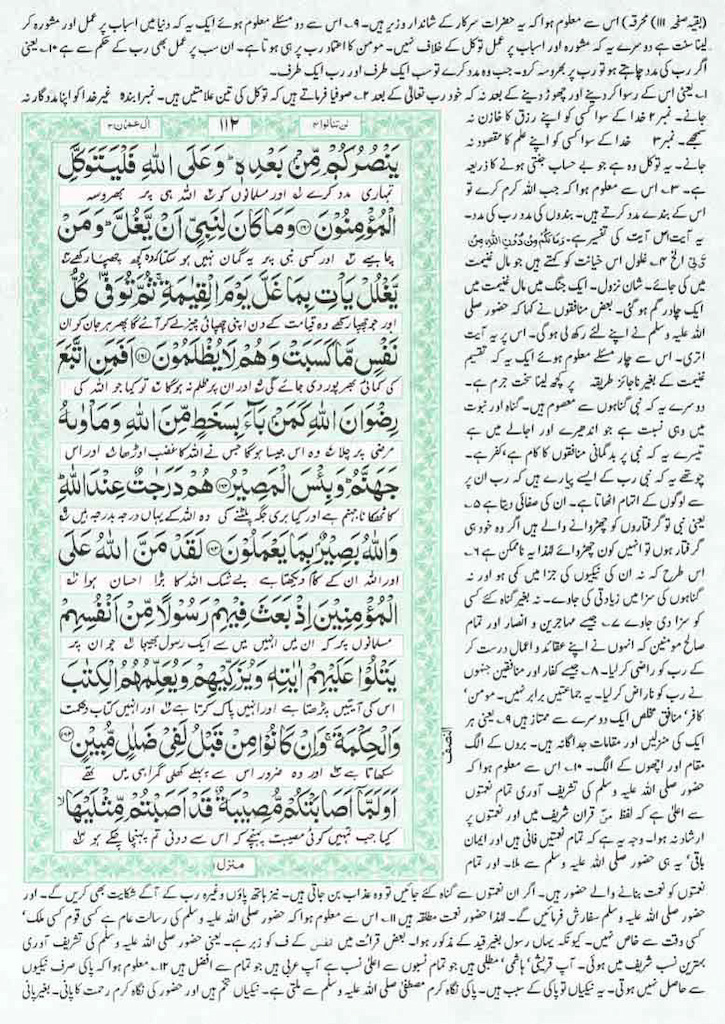 (بقیہ صفحہ ۱۱۱) محرقہ) اس سے معلوم ہوا کہ یہ حضرات سرکار کے شاندار وزیر ہیں۔ ۹۔ اس سے دو مسئلے معلوم ہوئے ایک یہ کہ دنیا میں اسباب پر عمل اور مشورہ کر
لینا سنت ہے دوسرے یہ کہ مشورہ اور اسباب پر عمل توکل کے خلاف نہیں۔ مومن کا اعتماد رب پر ہی ہوتا ہے۔ ان سب پر عمل بھی رب کے حکم سے ہے ۱۰۔ یعنی
اگر رب کی مدد چاہتے ہو تو رب پر بھروسہ کرو۔ جب وہ مدد کرے تو سب ایک طرف اور رب ایک طرف۔
۱۔ یعنی اس کے رسوا کر دینے اور چھوڑ دینے کے بعد نہ کہ خود رب تعالیٰ کے بعد ۲۔ صوفیا فرماتے ہیں کہ توکل کی تین علامتیں ہیں۔ نمبر۱ بندہ غیر خدا کو اپنا مددگار نہ
جانے۔ نمبر ۲ خدا کے سوا کسی کو اپنے رزق کا خازن نہ
سمجھے۔ نمبر ۳ خدا کے سوا کسی کو اپنے علم کا مقصود نہ
جانے۔ یہ توکل وہ ہے جو بے حساب جنتی ہونے کا ذریعہ
ہے۔ ۳۔ اس سے معلوم ہوا کہ جب اللہ کرم کرے تو
اس کے بندے مدد کرتے ہیں۔ بندوں کی مدد رب کی مدد۔
یہ آیت اس آیت کی تفسیر ہے۔ وَمَا لَكُمْ مِّنْ دُوْنِ اللّٰهِ مِنْ
وَّلِيٍّ الخ ۴۔ غلول اس خیانت کو کہتے ہیں جو مال غنیمت
میں کی جائے۔ شان نزول۔ ایک جنگ میں مال غنیمت میں
ایک چادر گم ہو گئی۔ بعض منافقوں نے کہا کہ حضور صلی
اللہ علیہ وسلم نے اپنے لئے رکھ لی ہو گی۔ اس پر یہ آیت
اتری۔ اس سے چار مسئلے معلوم ہوئے ایک یہ کہ تقسیم
غنیمت کے بغیر ناجائز طریقہ پر کچھ لینا سخت جرم ہے۔
دوسرے یہ کہ نبی گناہوں سے معصوم ہیں۔ گناہ اور نبوت
میں وہی نسبت ہے جو اندھیرے اور اجالے میں ہے
تیسرے یہ کہ نبی پر بدگمانی منافقوں کا کام ہے، کفر ہے۔
چوتھے یہ کہ نبی رب کے ایسے پیارے ہیں کہ رب ان پر
سے لوگوں کے اتہام اٹھاتا ہے۔ ان کی صفائی دیتا ہے ۵۔
یعنی نبی تو گرفتاروں کو چھڑوانے والے ہیں اگر وہ خود ہی
گرفتار ہوں تو انہیں کون چھڑوائے لہٰذا یہ ناممکن ہے ۶۔
اس طرح کہ نہ ان کی نیکیوں کی جزا میں کمی ہو اور نہ
گناہوں کی سزا میں زیادتی کی جاوے۔ نہ بغیر گناہ کئے کسی
کو سزا دی جاوے ۷۔ جیسے مہاجرین و انصار اور تمام
صالح مومنین کہ انہوں نے اپنے عقائد و اعمال درست کر
کے رب کو راضی کر لیا۔ ۸۔ جیسے کفار اور منافقین جنہوں
نے رب کو ناراض کر لیا۔ یہ جماعتیں برابر نہیں۔ مومن،
کافر، منافق مخلص ایک دوسرے سے ممتاز ہیں ۹۔ یعنی ہر
ایک کی منزلیں اور مقامات جداگانہ ہیں۔ بروں کے الگ
مقام اور اچھوں کے الگ۔ ۱۰۔ اس سے معلوم ہوا کہ
حضور صلی اللہ علیہ وسلم کی تشریف آوری تمام نعمتوں
سے اعلیٰ ہے کہ لفظ مَنَّ قرآن شریف میں اور نعمتوں پر
ارشاد نہ ہوا۔ وجہ یہ ہے کہ تمام نعمتیں فانی ہیں اور ایمان
باقی، یہ ہی حضور صلی اللہ علیہ وسلم سے ملا۔ اور تمام
آل عمٰرن ۳
۱۱۲
لن تنالوا ۴
يَنْصُرُكُمْ مِّنْ بَعْدِهٖ ؕ وَعَلَى اللّٰهِ فَلْيَتَوَكَّلِ
تمہاری مدد کرے اور مسلمانوں کو اللہ ہی پر بھروسہ
الْمُؤْمِنُوْنَ ۝۱۶۰ وَمَا كَانَ لِنَبِيٍّ اَنْ يَّغُلَّ ؕ وَمَنْ
چاہیے اور کسی نبی پر یہ گمان نہیں ہو سکتا کہ وہ کچھ چھپا رکھے
يَّغْلُلْ يَاْتِ بِمَا غَلَّ يَوْمَ الْقِيٰمَةِ ۚ ثُمَّ تُوَفّٰى كُلُّ
اور جو چھپا رکھے وہ قیامت کے دن اپنی چھپائی چیز لے کر آئے گا پھر ہر جان کو ان
نَفْسٍ مَّا كَسَبَتْ وَهُمْ لَا يُظْلَمُوْنَ ۝۱۶۱ اَفَمَنِ اتَّبَعَ
کی کمائی بھرپور دی جائے گی اور ان پر ظلم نہ ہو گا تو کیا جو اللہ کی
رِضْوَانَ اللّٰهِ كَمَنْۢ بَآءَ بِسَخَطٍ مِّنَ اللّٰهِ وَمَاْوٰىهُ
مرضی پر چلا وہ اس جیسا ہو گا جس نے اللہ کا غضب اوڑھا اور اس
جَهَنَّمُ ؕ وَبِئْسَ الْمَصِيْرُ ۝۱۶۲ هُمْ دَرَجٰتٌ عِنْدَ اللّٰهِ ؕ
کا ٹھکانا جہنم ہے اور کیا بری جگہ پلٹنے کی وہ اللہ کے یہاں درجہ بدرجہ ہیں
وَاللّٰهُ بَصِيْرٌۢ بِمَا يَعْمَلُوْنَ ۝۱۶۳ لَقَدْ مَنَّ اللّٰهُ عَلَى
اور اللہ ان کے کام دیکھتا ہے بے شک اللہ کا بڑا احسان ہوا
الْمُؤْمِنِيْنَ اِذْ بَعَثَ فِيْهِمْ رَسُوْلًا مِّنْ اَنْفُسِهِمْ
مسلمانوں پر کہ ان میں انہیں میں سے ایک رسول بھیجا جو ان پر
يَتْلُوْا عَلَيْهِمْ اٰيٰتِهٖ وَيُزَكِّيْهِمْ وَيُعَلِّمُهُمُ الْكِتٰبَ
اس کی آیتیں پڑھتا ہے اور انہیں پاک کرتا ہے اور انہیں کتاب و حکمت
وَالْحِكْمَةَ ۚ وَاِنْ كَانُوْا مِنْ قَبْلُ لَفِيْ ضَلٰلٍ مُّبِيْنٍ ۝۱۶۴
سکھاتا ہے اور وہ ضرور اس سے پہلے کھلی گمراہی میں تھے
اَوَلَمَّآ اَصَابَتْكُمْ مُّصِيْبَةٌ قَدْ اَصَبْتُمْ مِّثْلَيْهَا ۙ
کیا جب تمہیں کوئی مصیبت پہنچے کہ اس سے دونی تم پہنچا چکے ہو
النصف
منزل ۱
نعمتوں کو نعمت بنانے والے حضور ہیں۔ اگر ان نعمتوں سے گناہ کئے جائیں تو وہ عذاب بن جاتی ہیں۔ نیز ہاتھ پاؤں وغیرہ رب کے آگے شکایت بھی کریں گے۔ اور
حضور صلی اللہ علیہ وسلم سفارش فرمائیں گے۔ لہٰذا حضور نعمت مطلقہ ہیں ۱۱۔ اس سے معلوم ہوا کہ حضور صلی اللہ علیہ وسلم کی رسالت عام ہے کسی قوم کسی ملک،
کسی وقت سے خاص نہیں۔ کیونکہ یہاں رسول بغیر قید کے مذکور ہوا۔ بعض قرأت میں انفس کے ف کو زبر ہے۔ یعنی حضور صلی اللہ علیہ وسلم کی تشریف آوری
بہترین نسب شریف میں ہوئی۔ آپ قریشی، ہاشمی، مطلبی ہیں جو تمام نسبوں سے اعلیٰ نسب ہے آپ عربی ہیں جو تمام سے افضل ہیں ۱۲۔ معلوم ہوا کہ پاکی صرف نیکیوں
سے حاصل نہیں ہوتی۔ یہ نیکیاں تو پاکی کے سبب ہیں۔ پاکی نگاہ کرم مصطفیٰ صلی اللہ علیہ وسلم سے ملتی ہے۔ نیکیاں تخم ہیں اور حضور کی نگاہ کرم رحمت کا پانی۔ بغیر پانی